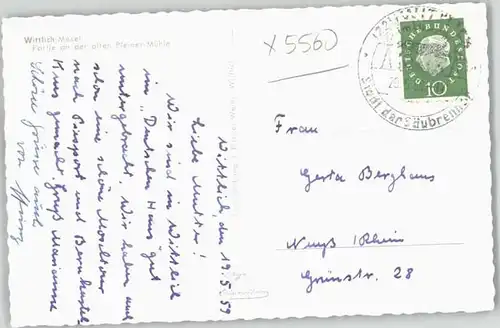 Wittlich-Mosel
Partie an der alten Pleiner-Mühle
x 5560
Wittlich, den 19.5.59
Liebe Mutter!
Wir sind in Wittlich
im „Deutschen Haus" gut
untergebracht. Wir haben auch
schon eine schöne Moseltour
nach Piesport und Bernkastel
Kues gemacht. Gruß Marianne
Schöne Grüsse auch
von
DEUTSCHE BUNDESPOST
10
WITTLICH
Stadt der Säubrenner
Frau
Gerta Berghaus
Neuß/Rhein
Grünstr. 28